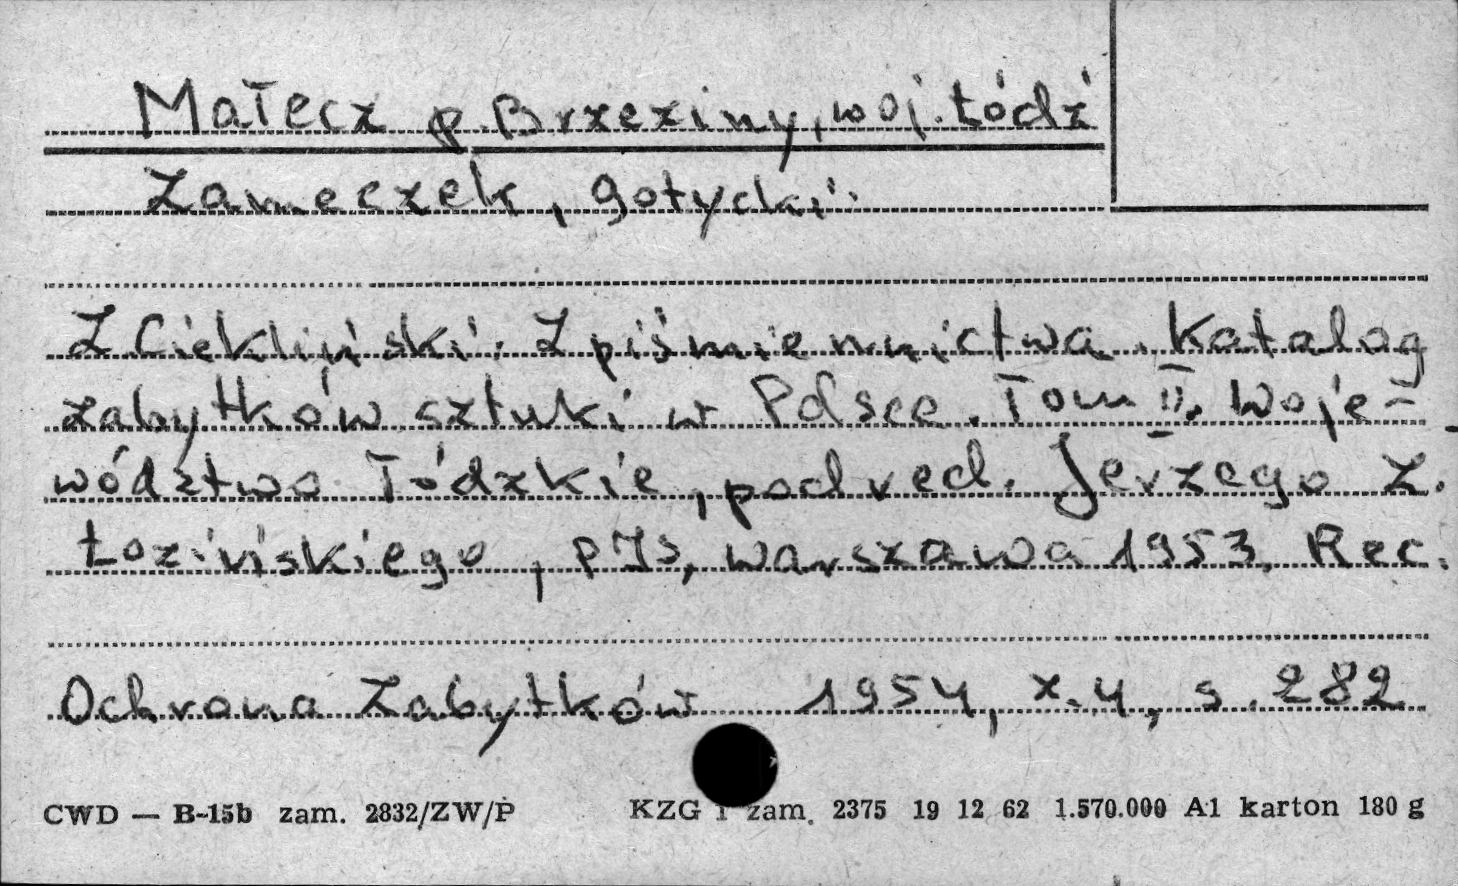 Małecz p. Brzeziny, woj. Łódź
Zameczek, gotycki.
Z Ciekliński. Z piśmiennictwa. Katalog
zabytków sztuki w Polsce. Tom II. Woje-
wództwo Łódzkie, pod red. Jerzego Z.
Łozińskiego, PIS, Warszawa 1953. Rec.
Ochrona Zabytków 1954, z. 4, s. 282
CWD — B-15b zam. 2832/ZW/P KZG 1 zam. 2375 19 12 62 1.570.000 A1 karton 180 g